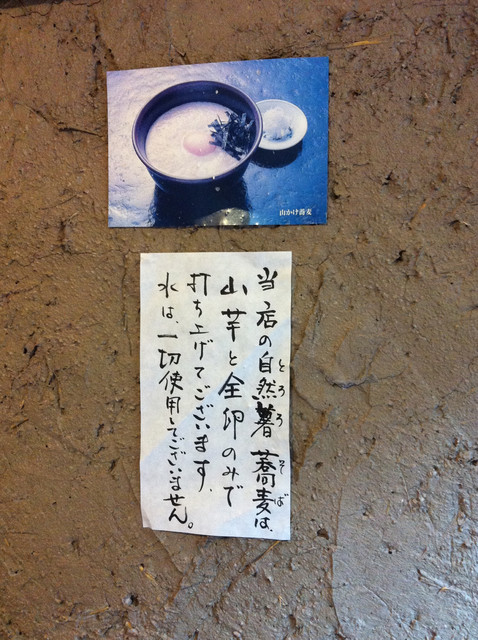 山かけ蕎麦
当店の自然薯蕎麦は、
とろろ そば
山芋と全卵のみで
打ち上げてございます。
水は、一切使用してございません。